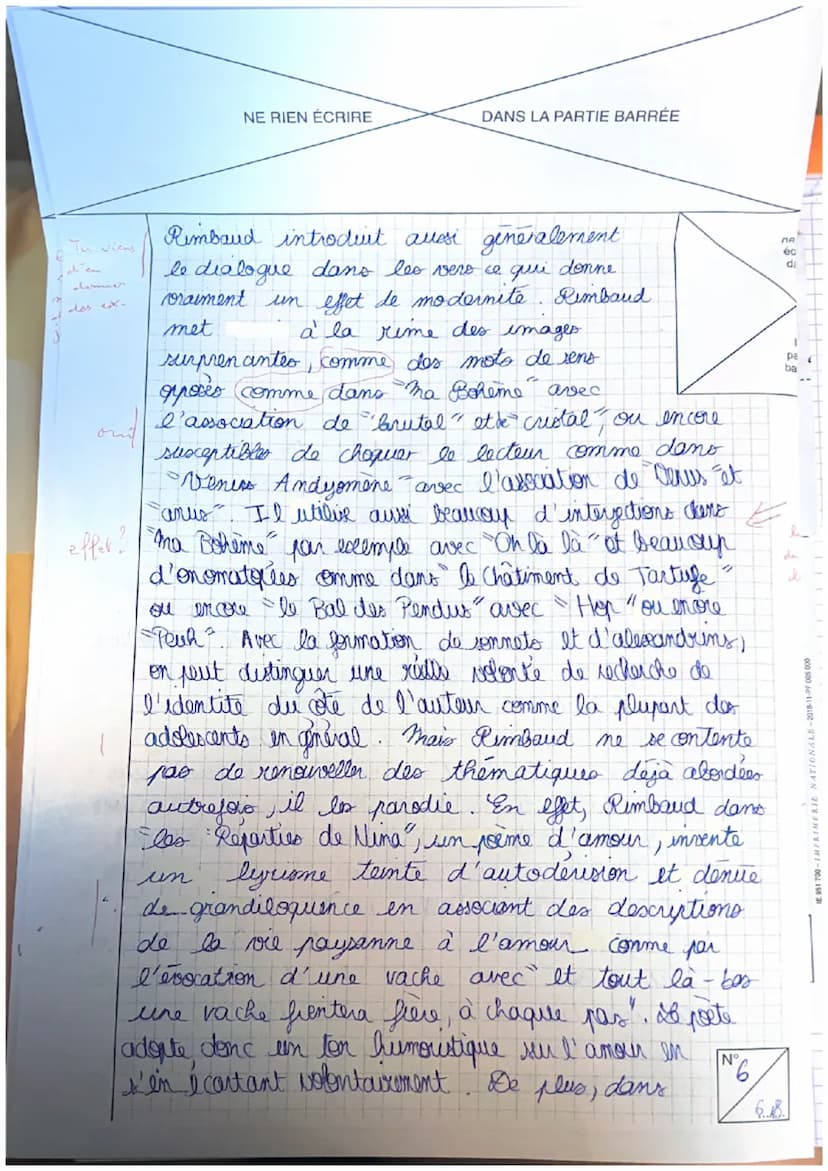 NE RIEN ÉCRIRE DANS LA PARTIE BARRÉE
Rimbaud introduit aussi généralement
Tu viens
le dialogue dans les vers ce qui donne
d'en
donner
vraiment un effet de modernité. Rimbaud
des ex-
met à la rime des images
surprenantes, comme des mots de sens
opposés comme dans "Ma Bohème" avec
l'association de "brutal" et "cristal", ou encore
susceptibles de choquer le lecteur comme dans
"Vénus Andyomène" avec l'association de "Vénus" et
"anus". Il utilise aussi beaucoup d'interjections dans
effet?
"Ma Bohème" par exemple avec "Oh là là" et beaucoup
d'onomatopées comme dans "le Châtiment de Tartufe"
ou encore "le Bal des Pendus" avec "Hop" ou encore
"Peuh". Avec la formation de sonnets et d'alexandrins,
on peut distinguer une réelle volonté de recherche de
l'identité du côté de l'auteur comme la plupart des
adolescents en général. Mais Rimbaud ne se contente
pas de renouveller des thématiques déjà abordées
autrefois, il les parodie. En effet, Rimbaud dans
"les Réparties de Nina", un poème d'amour, invente
un lyrisme teinté d'autodérision et dénué
de grandiloquence en associant des descriptions
de la vie paysanne à l'amour comme par
l'évocation d'une vache avec "et tout là-bas
une vache fientera fière, à chaque pas". Le poète
adopte donc un ton humoristique sur l'amour en
s'en écartant volontairement. De plus, dans
N°
6
6.18.
IE 951 700 - IMPRIMERIE NATIONALE - 2018-11-PF 005 000